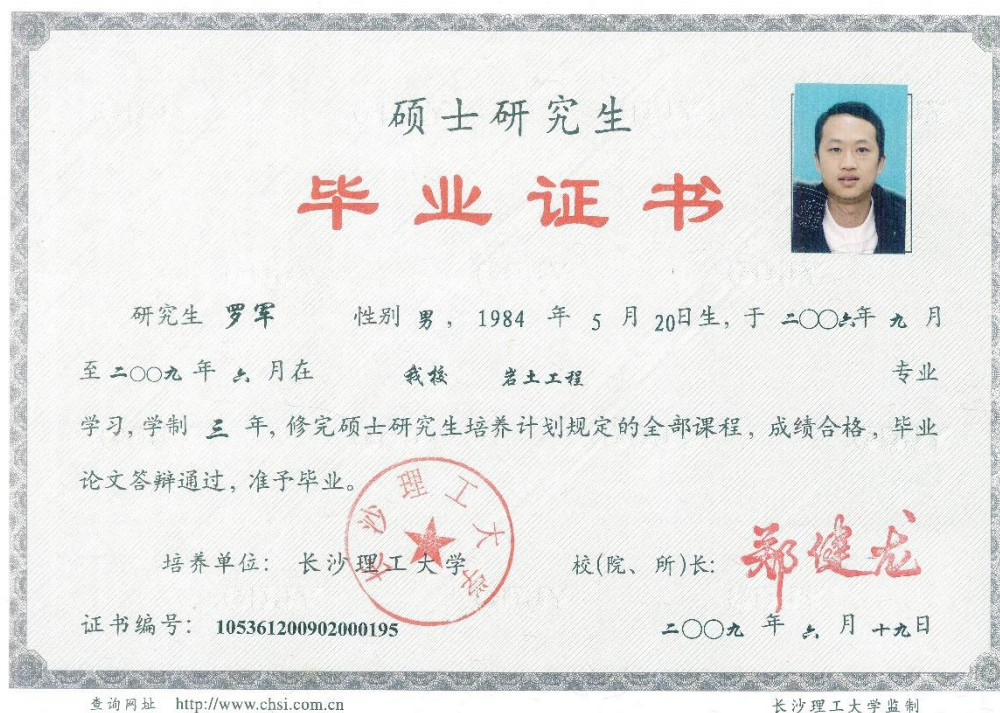 硕士研究生
毕业证书
研究生 罗军 性别 男， 1984 年 5 月 20日生, 于 二〇〇六年 九 月
至 二〇〇九 年 六 月在 我校 岩土工程 专业
学习, 学制 三 年, 修完硕士研究生培养计划规定的全部课程, 成绩合格, 毕业
论文答辩通过, 准予毕业。
长沙理工大学
培养单位: 长沙理工大学 校(院、所)长: 郑健龙
证书编号: 105361200902000195 二〇〇九 年 六 月 十九日
查询网址 http://www.chsi.com.cn 长沙理工大学监制